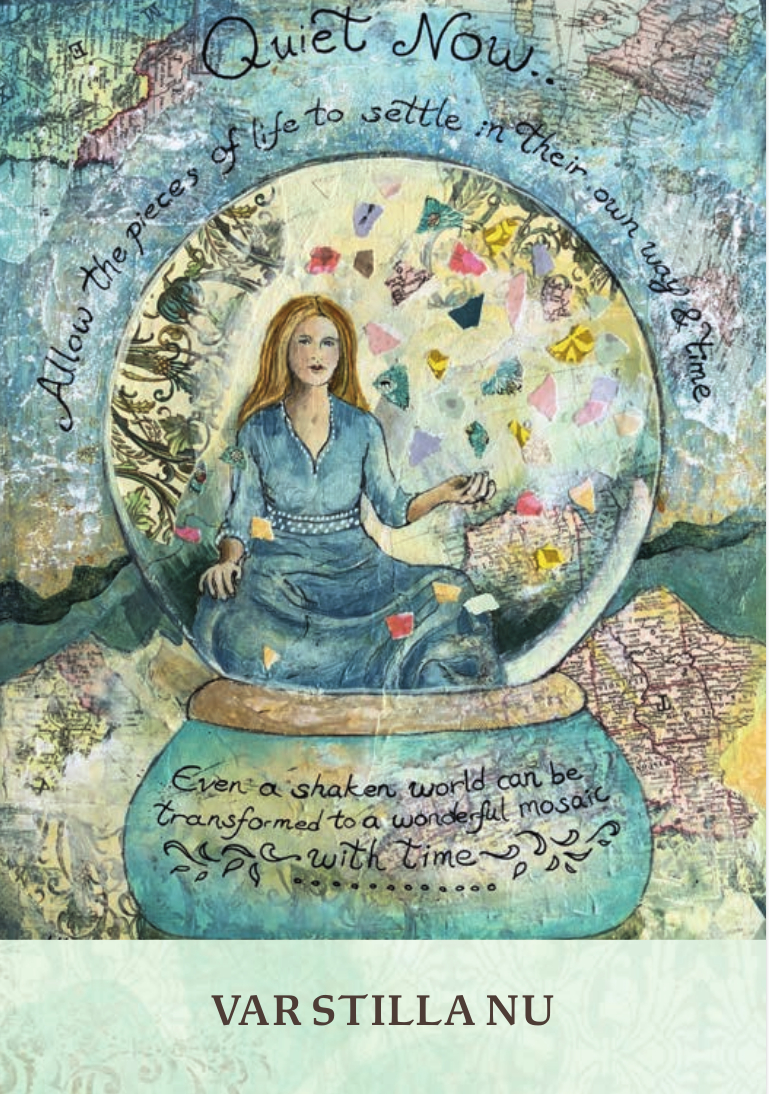 Quiet Now..
Allow the pieces of life to settle in their own way & time
Even a shaken world can be
transformed to a wonderful mosaic
with time
VAR STILLA NU